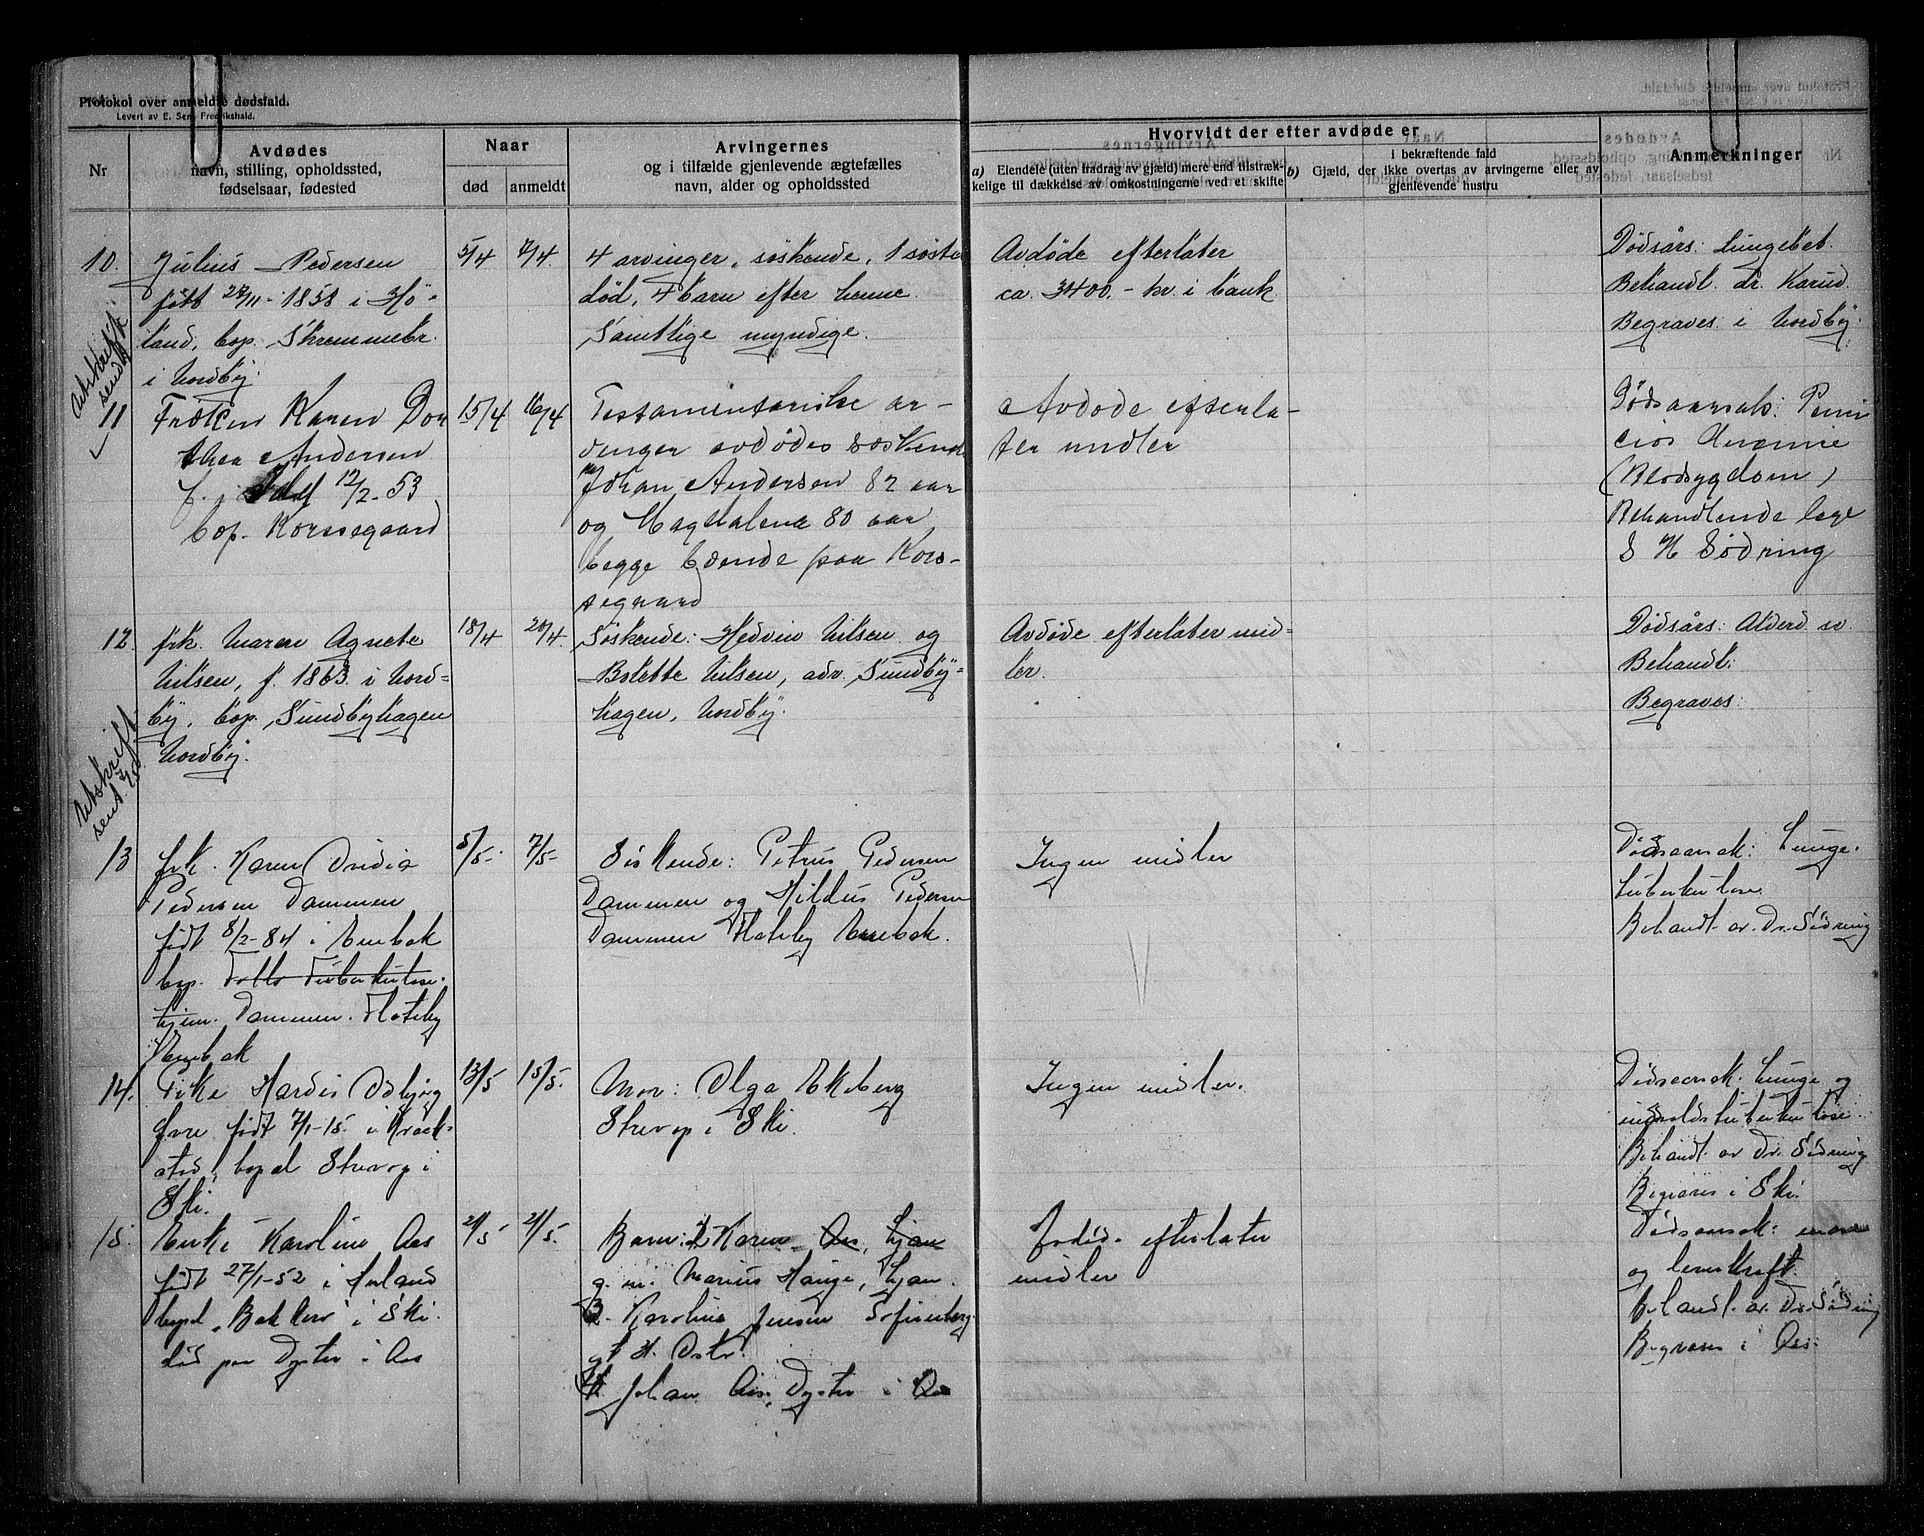 Protokol over anmeldte dødsfald.
Levert av E. Sem, Fredrikshald.
Nr
Avdødes
navn, stilling, opholdssted,
fødselsaar, fødested
Naar
død
anmeldt
Arvingernes
og i tilfælde gjenlevende ægtefælles
navn, alder og opholdssted
Hvorvidt der efter avdøde er
a) Eiendele (uten fradrag av gjæld) mere end tilstræk-
kelige til dækkelse av omkostningerne ved et skifte
i bekræftende fald
b) Gjæld, der ikke overtas av arvingerne eller av
gjenlevende hustru
Anmerkninger
10.
Julius Pedersen
født 27/11-1858 i Hö-
land, bop. Skremmebr.
i Nordby.
5/4
7/4.
4 arvinger, søskende, 1 søster
død, 4 barn efter henne.
Samtlige myndige.
Avdøde efterlater
ca. 3400.- kr. i bank
Dødsårs: Lungebet.
Behandl. dr. Karud.
Begraves i Nordby.
Utskrift
sendt
11
Frøken Karen Dor
thea Andersen
f. i 12/2-53
bop. Korsegaard
15/4
16/4
Testamentariske ar-
vinger avdødes søskende
Johan Andersen 82 aar
og Magdalena 80 aar
begge boende paa Kors-
egaard
Avdøde efterla-
ter midler
Dødsaarsak: Perni
ciøs Anæmie
(Blodsygdom)
Behandlende læge
S H Sødring
12.
frk. Maren Agnete
Nilsen, f. 1863. i Nord-
by, bop. Sundbyhagen
Nordby.
18/4
20/4.
Søskende: Hedvin Nilsen og
Bolette Nilsen, adr. Sundby-
hagen, Nordby.
Avdøde efterlater mid-
ler.
Dødsårs: Alderd.sv.
Behandl:
Begraves:
Utskrift
sendt
13
frk. Karen Ovidia
Pedersen Dammen
født 8/2-84 i Enebak
bop. Follo Tuberkulose-
hjem. Dammen. Flateby
Enebak
5/5-
7/5-
Søskende: Petrus Pedersen
Dammen og Hildus Pedersen
Dammen Flateby Enebak.
Ingen midler
Dødsaarsak: Lunge-
tuberkulose.
Behandl. av. Dr. Sødring
14.
Pike Hardis Asbjørg
Øvre født 7/1-15. i Kraak-
stad, bopæl Skrevop i
Ski.
13/5
15/5.
Mor: Olga Ekeberg
Skrevop i Ski.
Ingen midler.
Dødsaarsak. Lunge og
tuberkulose.
Behandl av Dr. Sødring
Begraves i Ski.
15.
Enke Karoline Aas
født 27/1-52 i
bopæl „Bakken" i Ski.
død paa Dyster i Aas
21/5
21/5.
Barn: 1. Karen Aas, Ljan
g. m. Marius Hauge, Ljan.
2. Karoline Jensen Sofienberg-
gt 14. Oslo.
Johan Aas, Dyster i Aas
Avdøde efterlater
midler
Dødsaarsak:
og leverkræft.
Behandl. av. Dr. Sødring
Begraves i Aas.